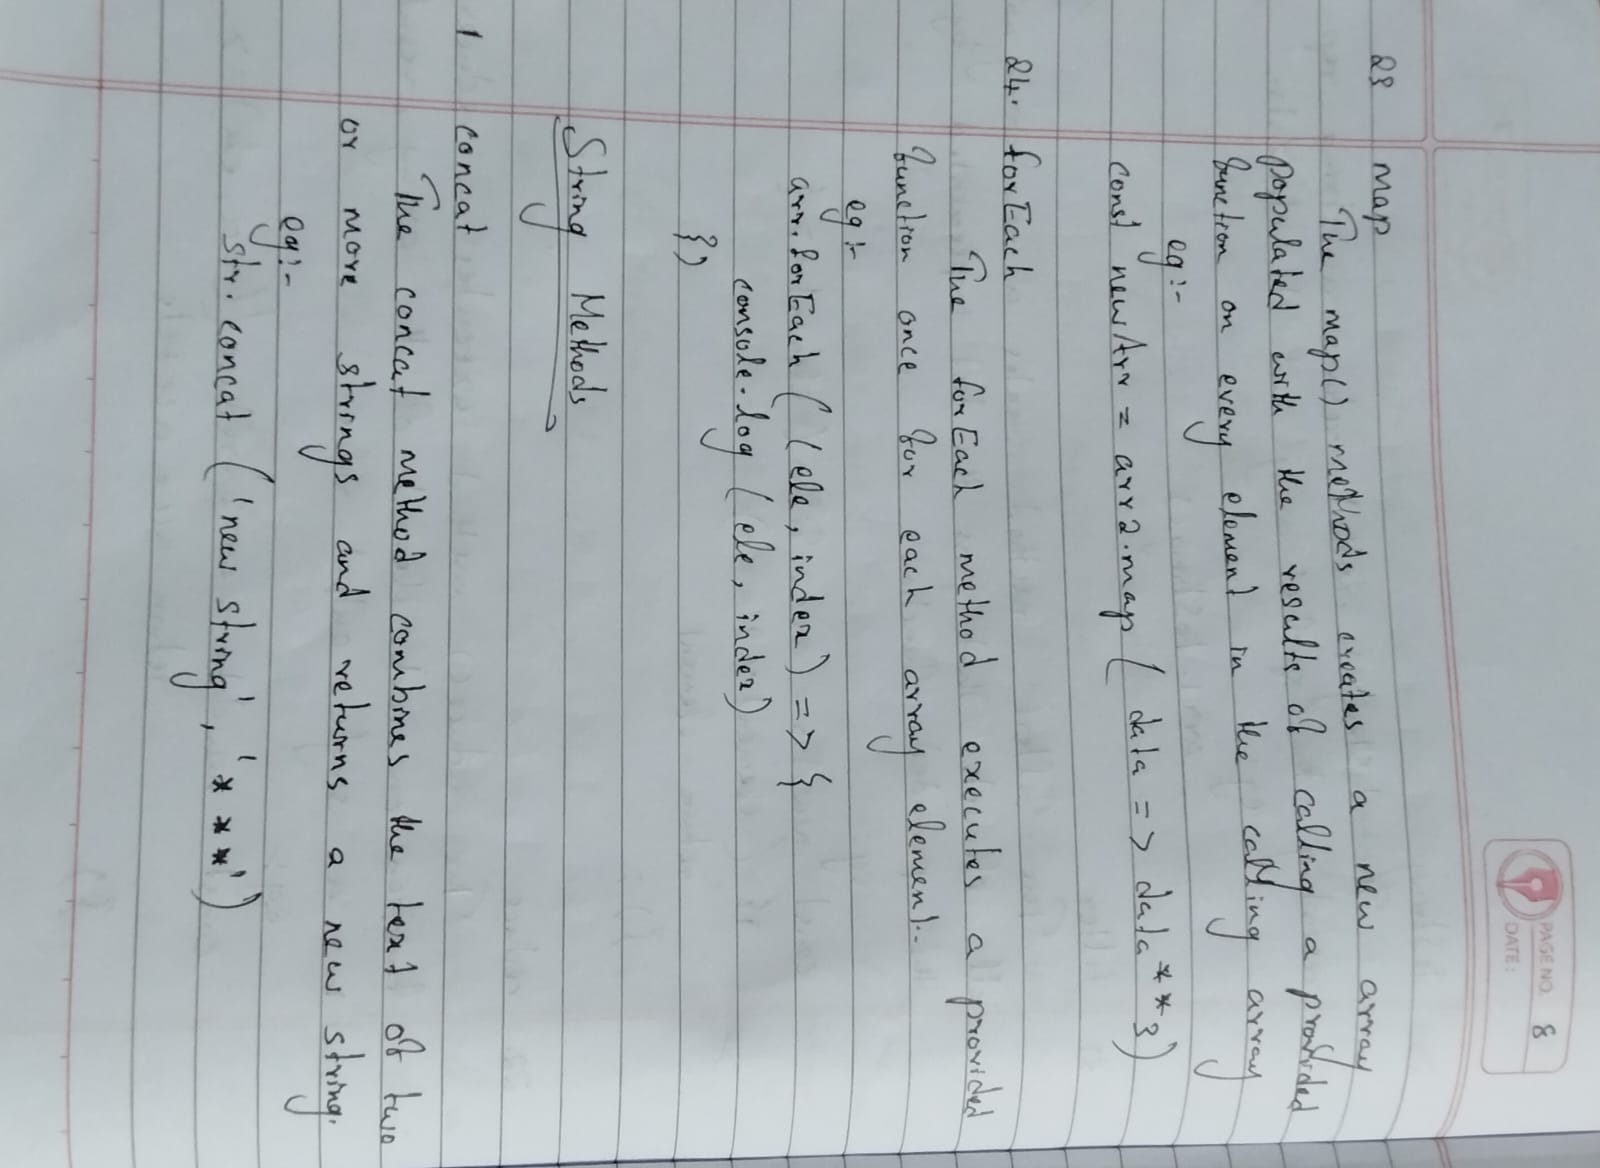 PAGE NO. 8
DATE:
23 map
The map() methods creates a new array
populated with the results of calling a provided
function on every element in the calling array
eg:-
const newArr = arr2.map( data => data**3)
24. forEach
The forEach method executes a provided
function once for each array element.
eg:-
arr.forEach ( (ele, index) => {
console.log (ele, index)
})
String Methods
1 concat
The concat method combines the text of two
or more strings and returns a new string.
eg:-
str.concat ('new string', '***')